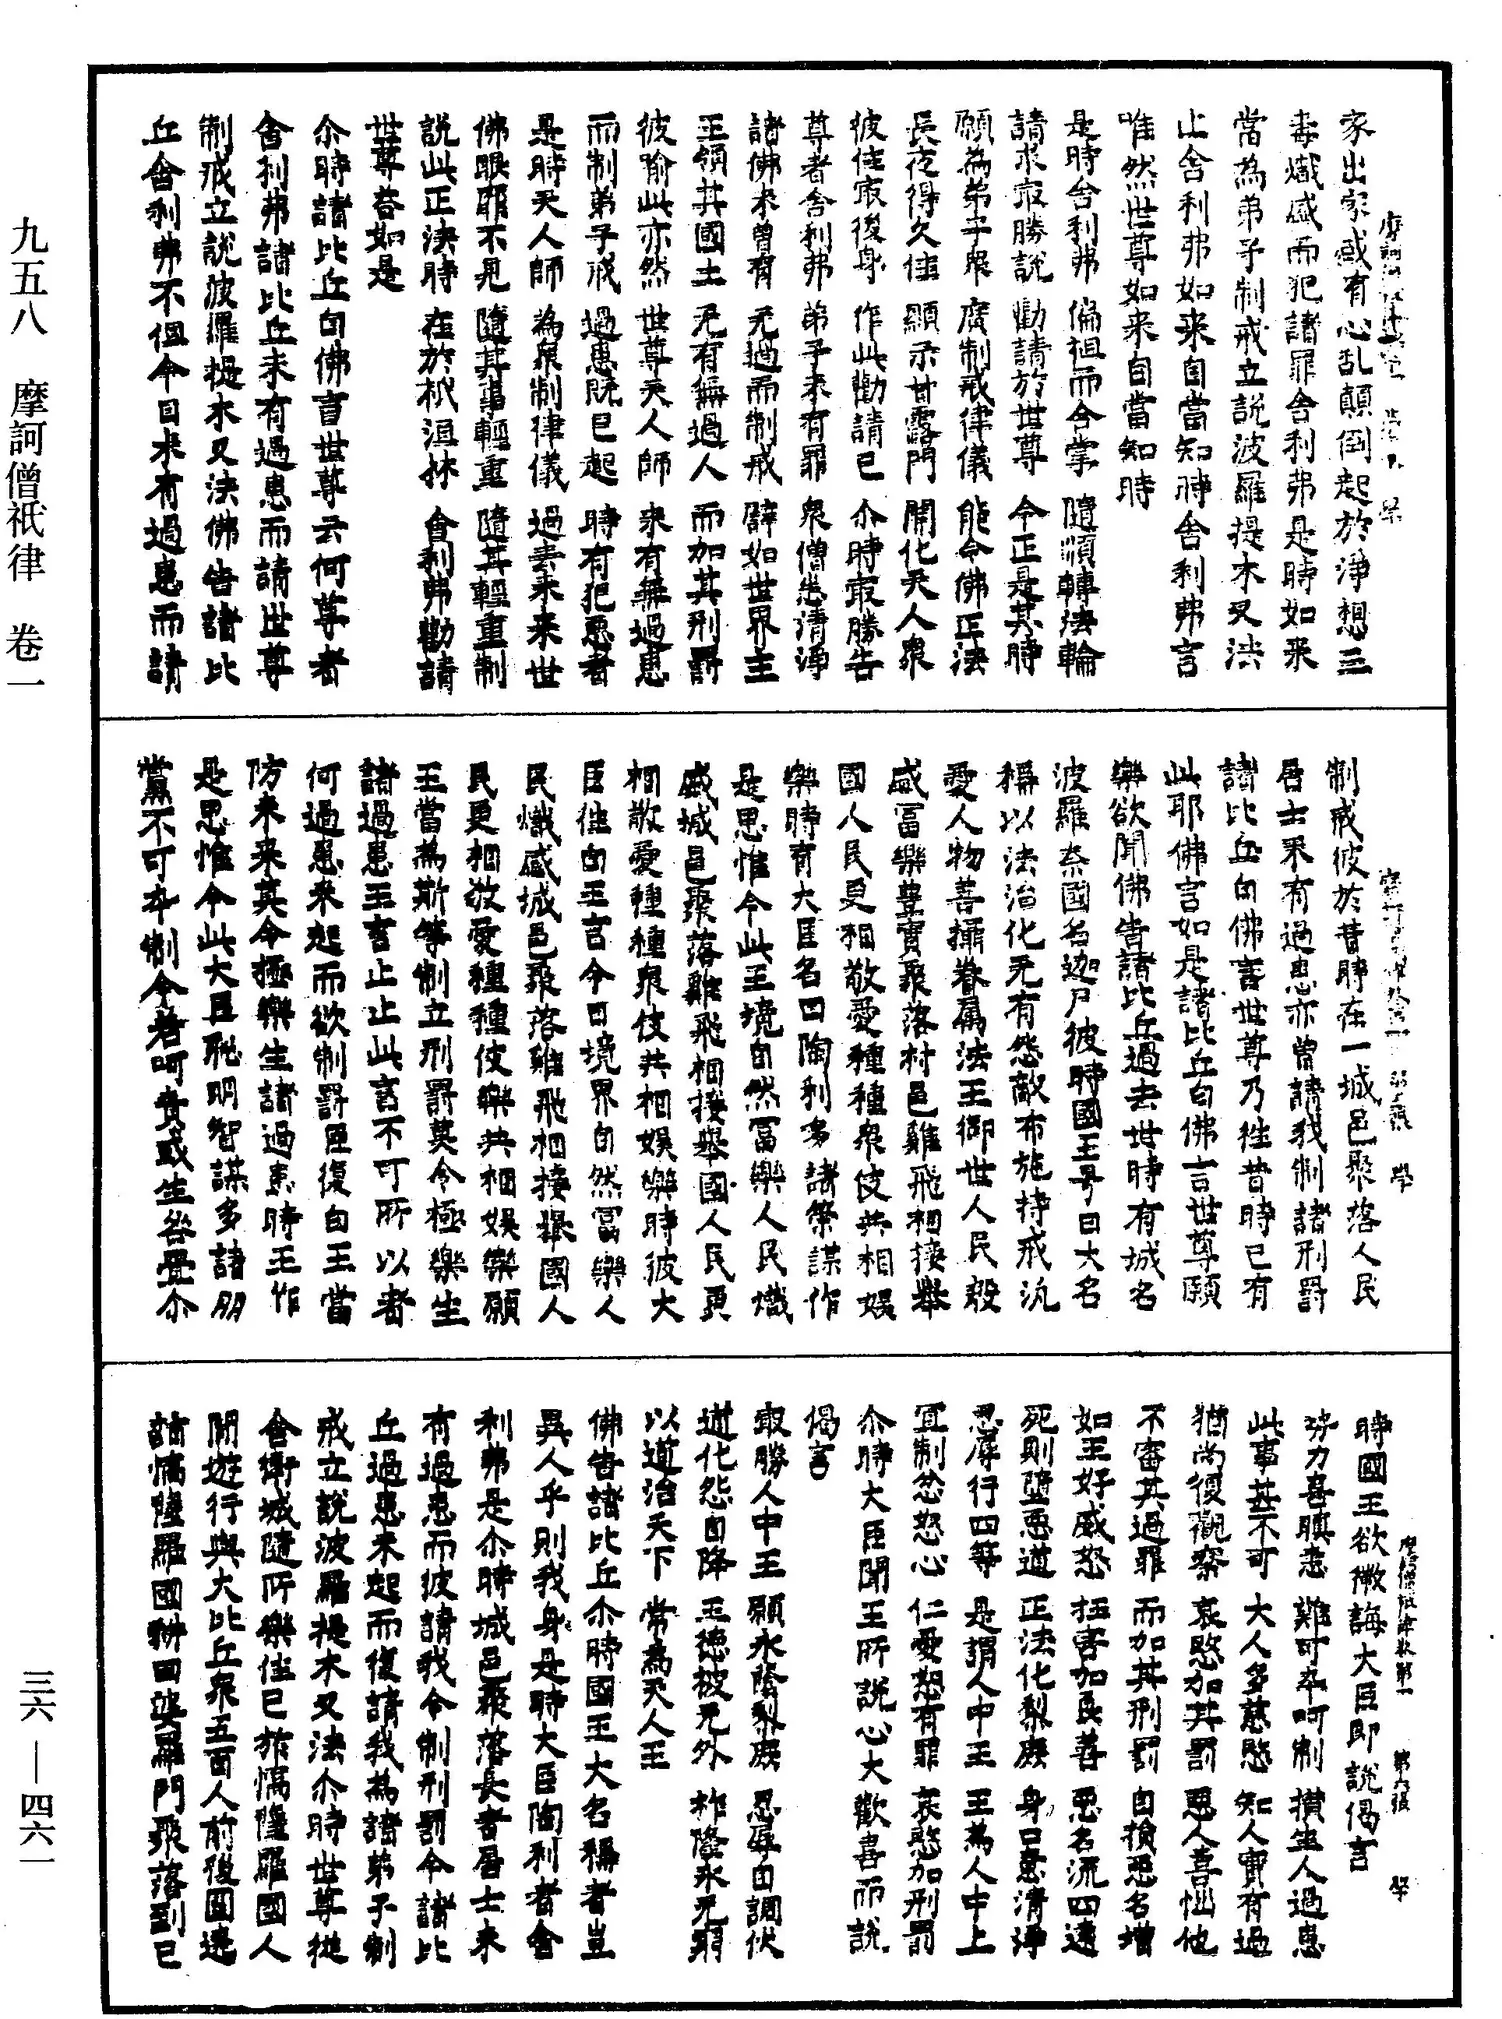 家出家或有心乱顛倒起於淨想三
毒熾盛而犯諸罪舍利弗是時如来
當為弟子制戒立說波羅提木叉法
止舍利弗如来自當知時舍利弗言
唯然世尊如来自當知時
是時舍利弗 偏袒而合掌 隨順轉法輪
請求㝡勝說 勸請於世尊 今正是其時
願為弟子眾 廣制戒律儀 能令佛正法
長夜得久住 顯示甘露門 開化天人眾
彼住㝡後身 作此勸請已 尒時㝡勝告
尊者舍利弗 弟子未有罪 眾僧悉清淨
諸佛未曾有 无過而制戒 譬如世界主
王領其國土 无有無過人 而加其刑罰
彼喻此亦然 世尊天人師 未有無過患
而制弟子戒 過患既已起 時有犯惡者
是時天人師 為眾制律儀 過去未来世
佛眼靡不見 隨其事輕重 隨其輕重制
說此正法時 在於祇洹林 舍利弗勸請
世尊荅如是
尒時諸比丘白佛言世尊云何尊者
舍利弗諸比丘未有過患而請世尊
制戒立說波羅提木叉法佛告諸比
丘舍利弗不但今日未有過患而請
制戒彼於昔時在一城邑聚落人民
居士未有過患亦曾請我制諸刑罰
諸比丘白佛言世尊乃往昔時已有
此耶佛言如是諸比丘白佛言世尊願
樂欲聞佛告諸比丘過去世時有城名
波羅奈國名迦尸彼時國王号曰大名
稱以法治化无有怨敵布施持戒汎
愛人物善攝眷属法王御世人民殷
盛冨樂豊實聚落村邑雞飛相接舉
國人民更相敬愛種種眾伎共相娛
樂時有大臣名曰陶利多諸策謀作
是思惟今此王境自然冨樂人民熾
盛城邑聚落雞飛相接舉國人民更
相敬愛種種眾伎共相娛樂時彼大
臣往白王言今日境界自然冨樂人
民熾盛城邑聚落雞飛相接舉國人
民更相敬愛種種伎樂共相娛樂願
王當為斯等制立刑罰莫令極樂生
諸過患王言止止此言不可所以者
何過患未起而欲制罰臣復白王當
防未来莫令極樂生諸過患時王作
是思惟今此大臣聦明智謀多諸朋
黨不可卒制今若呵責或生咎舋尒
時國王欲微誨大臣即說偈言
勢力喜瞋恚 難可卒呵制 横生人過患
此事甚不可 大人多慈愍 知人實有過
猶尚復觀察 哀愍加其罰 惡人喜惱他
不審其過罪 而加其刑罰 自損惡名增
如王好威怒 枉害加良善 惡名流四遠
死則墮惡道 正法化黎庶 身口意清淨
忍辱行四等 是謂人中王 王為人中上
宜制忿怒心 仁愛恕有罪 哀愍加刑罰
尒時大臣聞王所說心大歡喜而說
偈言
㝡勝人中王 願永䕃黎庶 忍辱自調伏
道化怨自降 王德被无外 祚隆永无窮
以道治天下 常為天人王
佛告諸比丘尒時國王大名稱者豈
異人乎則我身是時大臣陶利者舍
利弗是尒時城邑聚落長者居士未
有過患而彼請我令制刑罰今諸比
丘過患未起而復請我為諸弟子制
戒立說波羅提木叉法尒時世尊從
舍衛城隨所樂住已於憍薩羅國人
間遊行與大比丘眾五百人前後圍遶
詣憍薩羅國耕田婆羅門聚落到已
九五八 摩訶僧祇律 卷一
三六—四六一